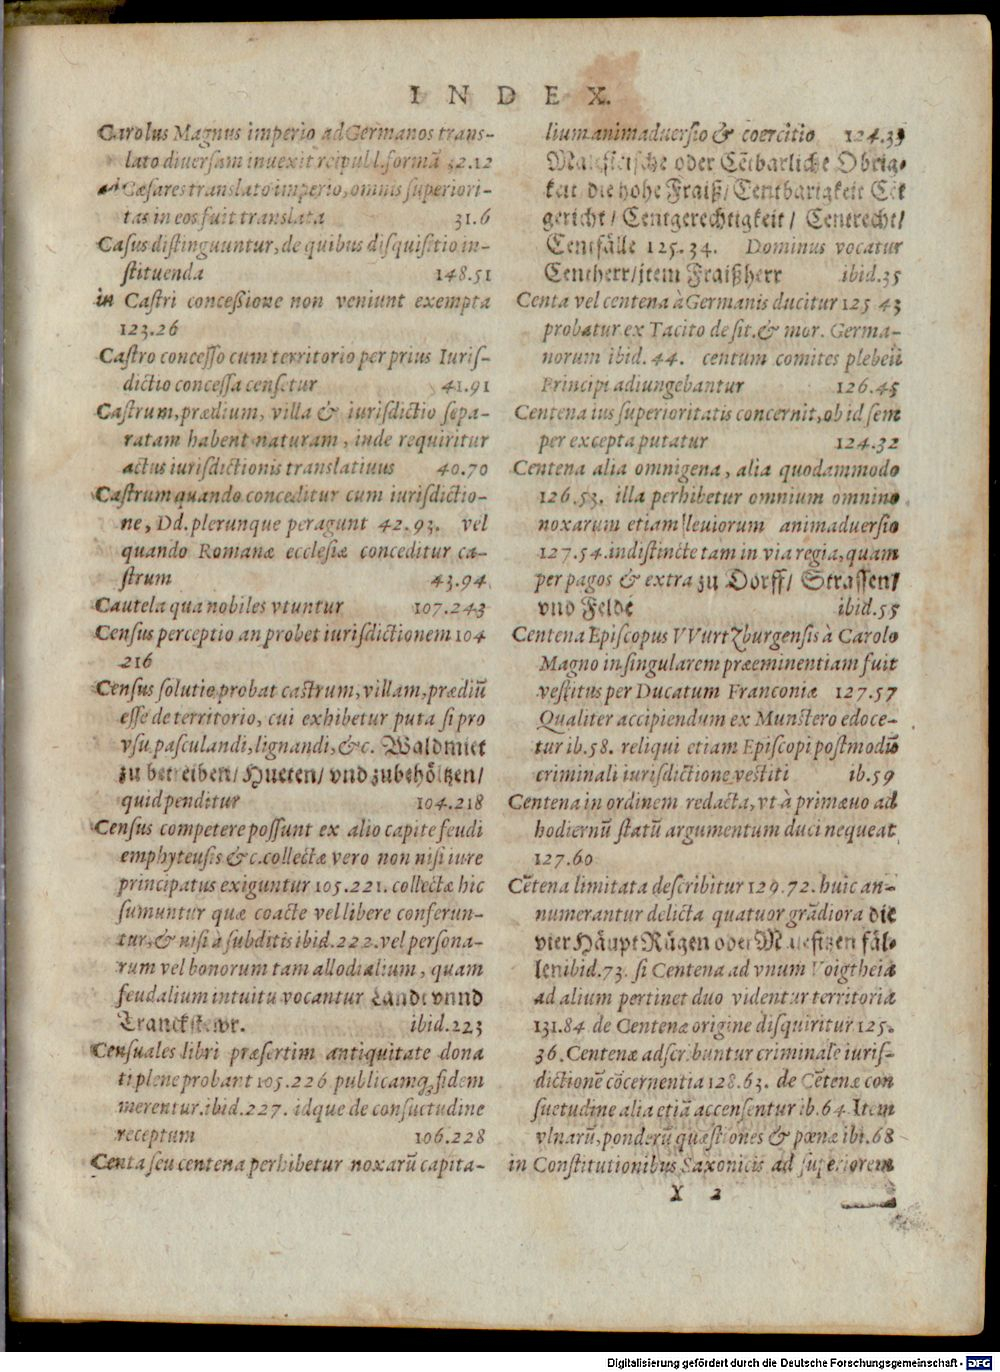 INDEX.
Carolus Magnus imperio ad Germanos trans-
lato diversam inuexit reipubl. formā 32.12
ad Cæsares translato imperio, omnis superiori-
tas in eos fuit translata 31.6
Casus distinguuntur, de quibus disquisitio in-
stituenda 148.51
in Castri concessione non veniunt exempta
123.26
Castro concesso cum territorio per prius Iuris-
dictio concessa censetur 41.91
Castrum, prædium, villa & iurisdictio sepa-
ratam habent naturam, inde requiritur
actus iurisdictionis translatiuus 40.70
Castrum quando conceditur cum iurisdictio-
ne, Dd. plerunque peragunt 42.93. vel
quando Romanæ ecclesiæ conceditur ca-
strum 43.94
Cautela qua nobiles vtuntur 107.243
Census perceptio an probet iurisdictionem 104
216
Census solutio probat castrum, villam, prædiū
esse de territorio, cui exhibetur puta si pro
vsu pascualandi, lignandi, &c. Waldmiet
zu betreiben/ Hueten/ vnd zubehöltzen/
quid penditur 104.218
Census competere possunt ex alio capite feudi
emphyteusis &c. collectæ vero non nisi iure
principatus exiguntur 105.221. collectæ hic
sumuntur quæ coacte vel libere conferun-
tur, & nisi à subditis ibid. 222. vel persona-
rum vel bonorum tam allodialium, quam
feudalium intuitu vocantur Landt vnnd
Tranckstewr. ibid. 223
Censuales libri præsertim antiquitate dona
ti plene probant 105.226 publicamq; fidem
merentur. ibid. 227. idque de consuetudine
receptum 106.228
Centa seu centena perhibetur noxarū capita-
lium animaduersio & coercitio 124.33
Malefitzische oder Cētbarliche Obrig-
keit die hohe Fraiß/ Centbarigkeit Cēt
gericht/ Centgerechtigkeit/ Centrecht/
Centfälle 125.34. Dominus vocatur
Centherr/ item Fraißherr ibid. 35
Centa vel centena à Germanis ducitur 125 43
probatur ex Tacito de sit. & mor. Germa-
norum ibid. 44. centum comites plebeii
Principi adiungebantur 126.45
Centena ius superioritatis concernit, ob id sem
per excepta putatur 124.32
Centena alia omnigena, alia quodammodo
126.53. illa perhibetur omnium omnino
noxarum etiam leuiorum animaduersio
127.54. indistincte tam in via regia, quam
per pagos & extra zu Dorff/ Strassen/
vnd Felde ibid. 55
Centena Episcopus VVurtzburgensis à Carolo
Magno in singularem præeminentiam fuit
vestitus per Ducatum Franconiæ 127.57
Qualiter accipiendum ex Munstero edoce-
tur ib. 58. reliqui etiam Episcopi postmodū
criminali iurisdictione vestiti ib. 59
Centena in ordinem redacta, vt à primæuo ad
hodiernū statū argumentum duci nequeat
127.60
Cētena limitata describitur 129.72. huic an-
numerantur delicta quatuor grādiora die
vier Häupt Rügen oder Malefitzen fäl-
len ibid. 73. si Centena ad vnum Voigtheia
ad alium pertinet duo videntur territoria
131.84 de Centenæ origine disquiritur 125.
36. Centenæ adscribuntur criminale iuris-
dictionē cōcernentia 128.63. de Cētenæ con
suetudine alia etiā accensentur ib. 64 Item
vlnarū, ponderū quæstiones & pœnæ ibi. 68
in Constitutionibus Saxonicis ad superiorem
Y 2
Digitalisierung gefördert durch die Deutsche Forschungsgemeinschaft - DFG